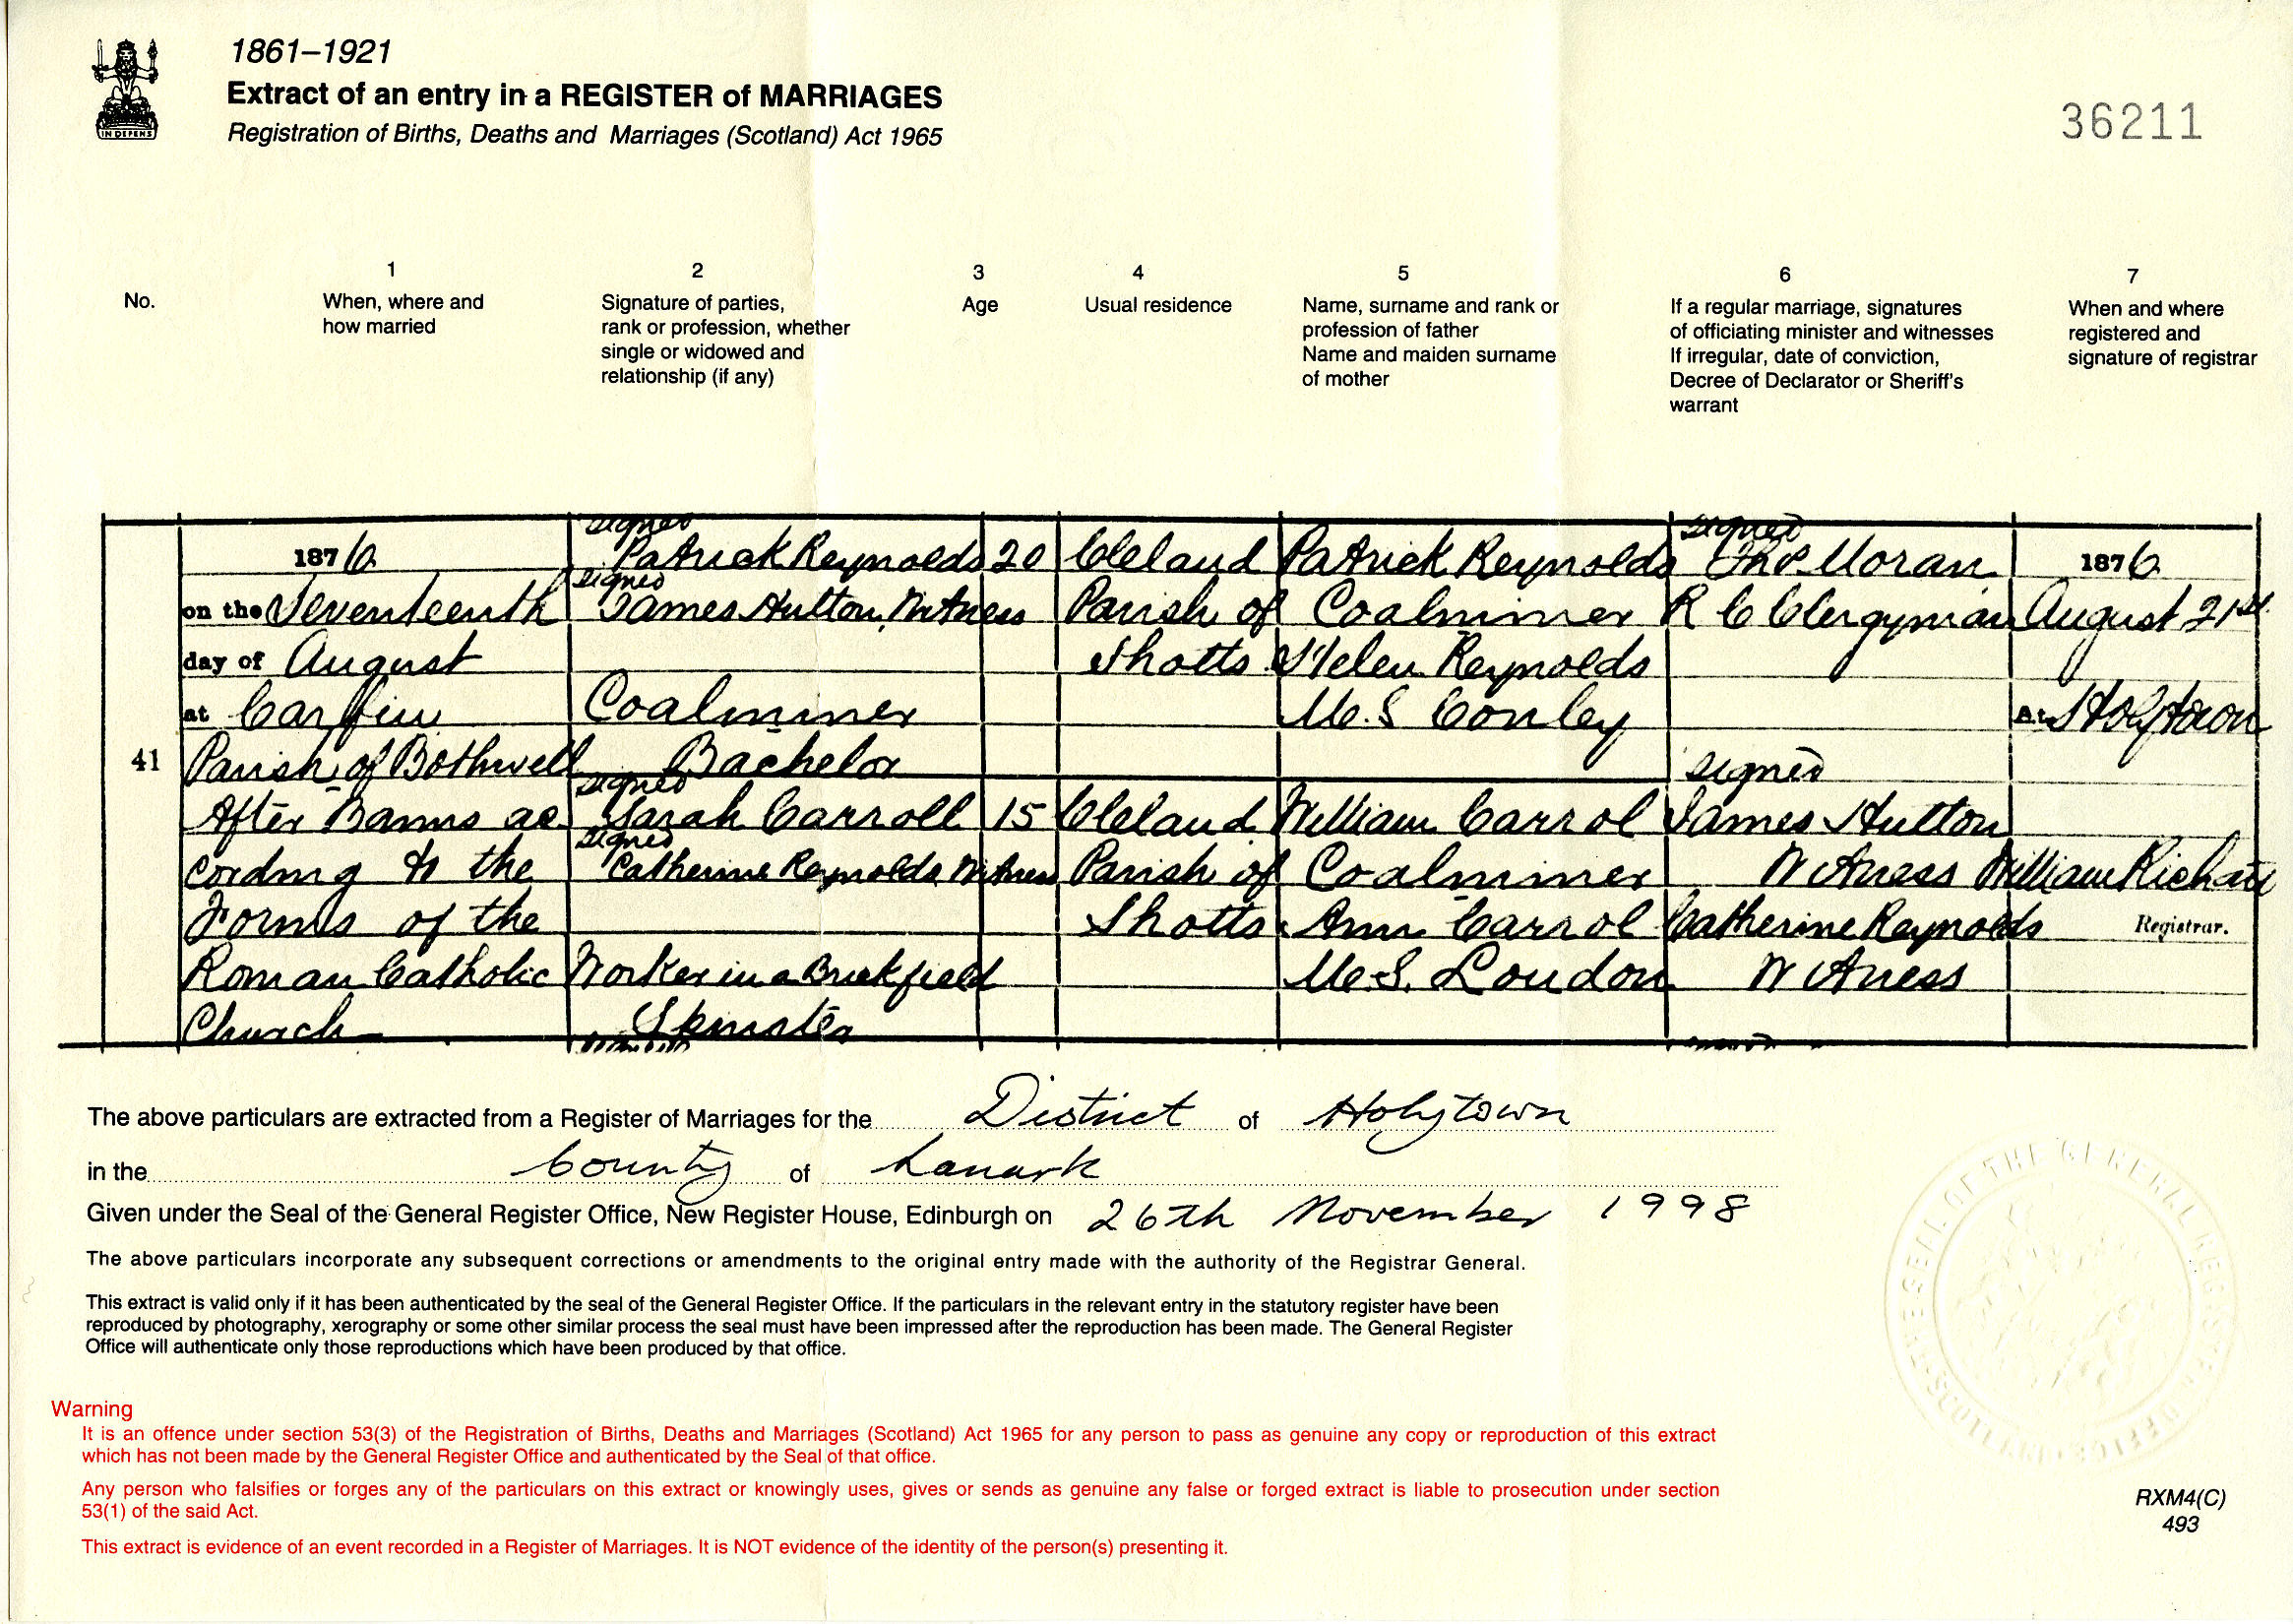 1861–1921
Extract of an entry in a REGISTER of MARRIAGES
Registration of Births, Deaths and Marriages (Scotland) Act 1965
IN DEFENS
36211
No.
1
When, where and
how married
2
Signature of parties,
rank or profession, whether
single or widowed and
relationship (if any)
3
Age
4
Usual residence
5
Name, surname and rank or
profession of father
Name and maiden surname
of mother
6
If a regular marriage, signatures
of officiating minister and witnesses
If irregular, date of conviction,
Decree of Declarator or Sheriff's
warrant
7
When and where
registered and
signature of registrar
41
1876
on the Seventeenth
day of August
at Carfin
Parish of Bothwell
After Banns ac
cording to the
Forms of the
Roman Catholic
Church
signed
Patrick Reynolds
signed
James Hutton, Witness
Coalminer
Bachelor
signed
Sarah Carroll
signed
Catherine Reynolds Witness
Worker in a Brickfield
Spinster
20
15
Cleland
Parish of
Shotts
Cleland
Parish of
Shotts
Patrick Reynolds
Coalminer
Helen Reynolds
M.S Conley
William Carrol
Coalminer
Ann Carrol
M.S. Loudon
signed
Moran
R C Clergyman
signed
James Hutton
Witness
Catherine Reynolds
Witness
1876
August 21st
At Holytown
William
Registrar.
The above particulars are extracted from a Register of Marriages for the District of Holytown
in the County of Lanark
Given under the Seal of the General Register Office, New Register House, Edinburgh on 26th November 1998
The above particulars incorporate any subsequent corrections or amendments to the original entry made with the authority of the Registrar General.
This extract is valid only if it has been authenticated by the seal of the General Register Office. If the particulars in the relevant entry in the statutory register have been
reproduced by photography, xerography or some other similar process the seal must have been impressed after the reproduction has been made. The General Register
Office will authenticate only those reproductions which have been produced by that office.
Warning
It is an offence under section 53(3) of the Registration of Births, Deaths and Marriages (Scotland) Act 1965 for any person to pass as genuine any copy or reproduction of this extract
which has not been made by the General Register Office and authenticated by the Seal of that office.
Any person who falsifies or forges any of the particulars on this extract or knowingly uses, gives or sends as genuine any false or forged extract is liable to prosecution under section
53(1) of the said Act.
This extract is evidence of an event recorded in a Register of Marriages. It is NOT evidence of the identity of the person(s) presenting it.
RXM4(C)
493